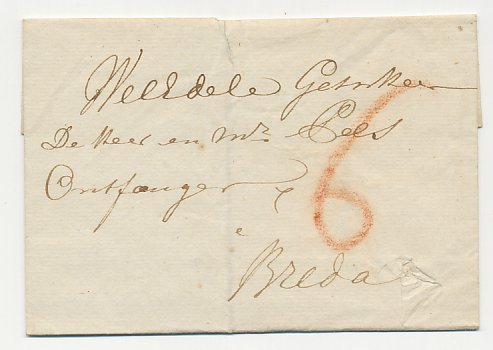 WelEdele Gestr Heer
De Heer en Mr Cels
Ontfanger
6
Breda